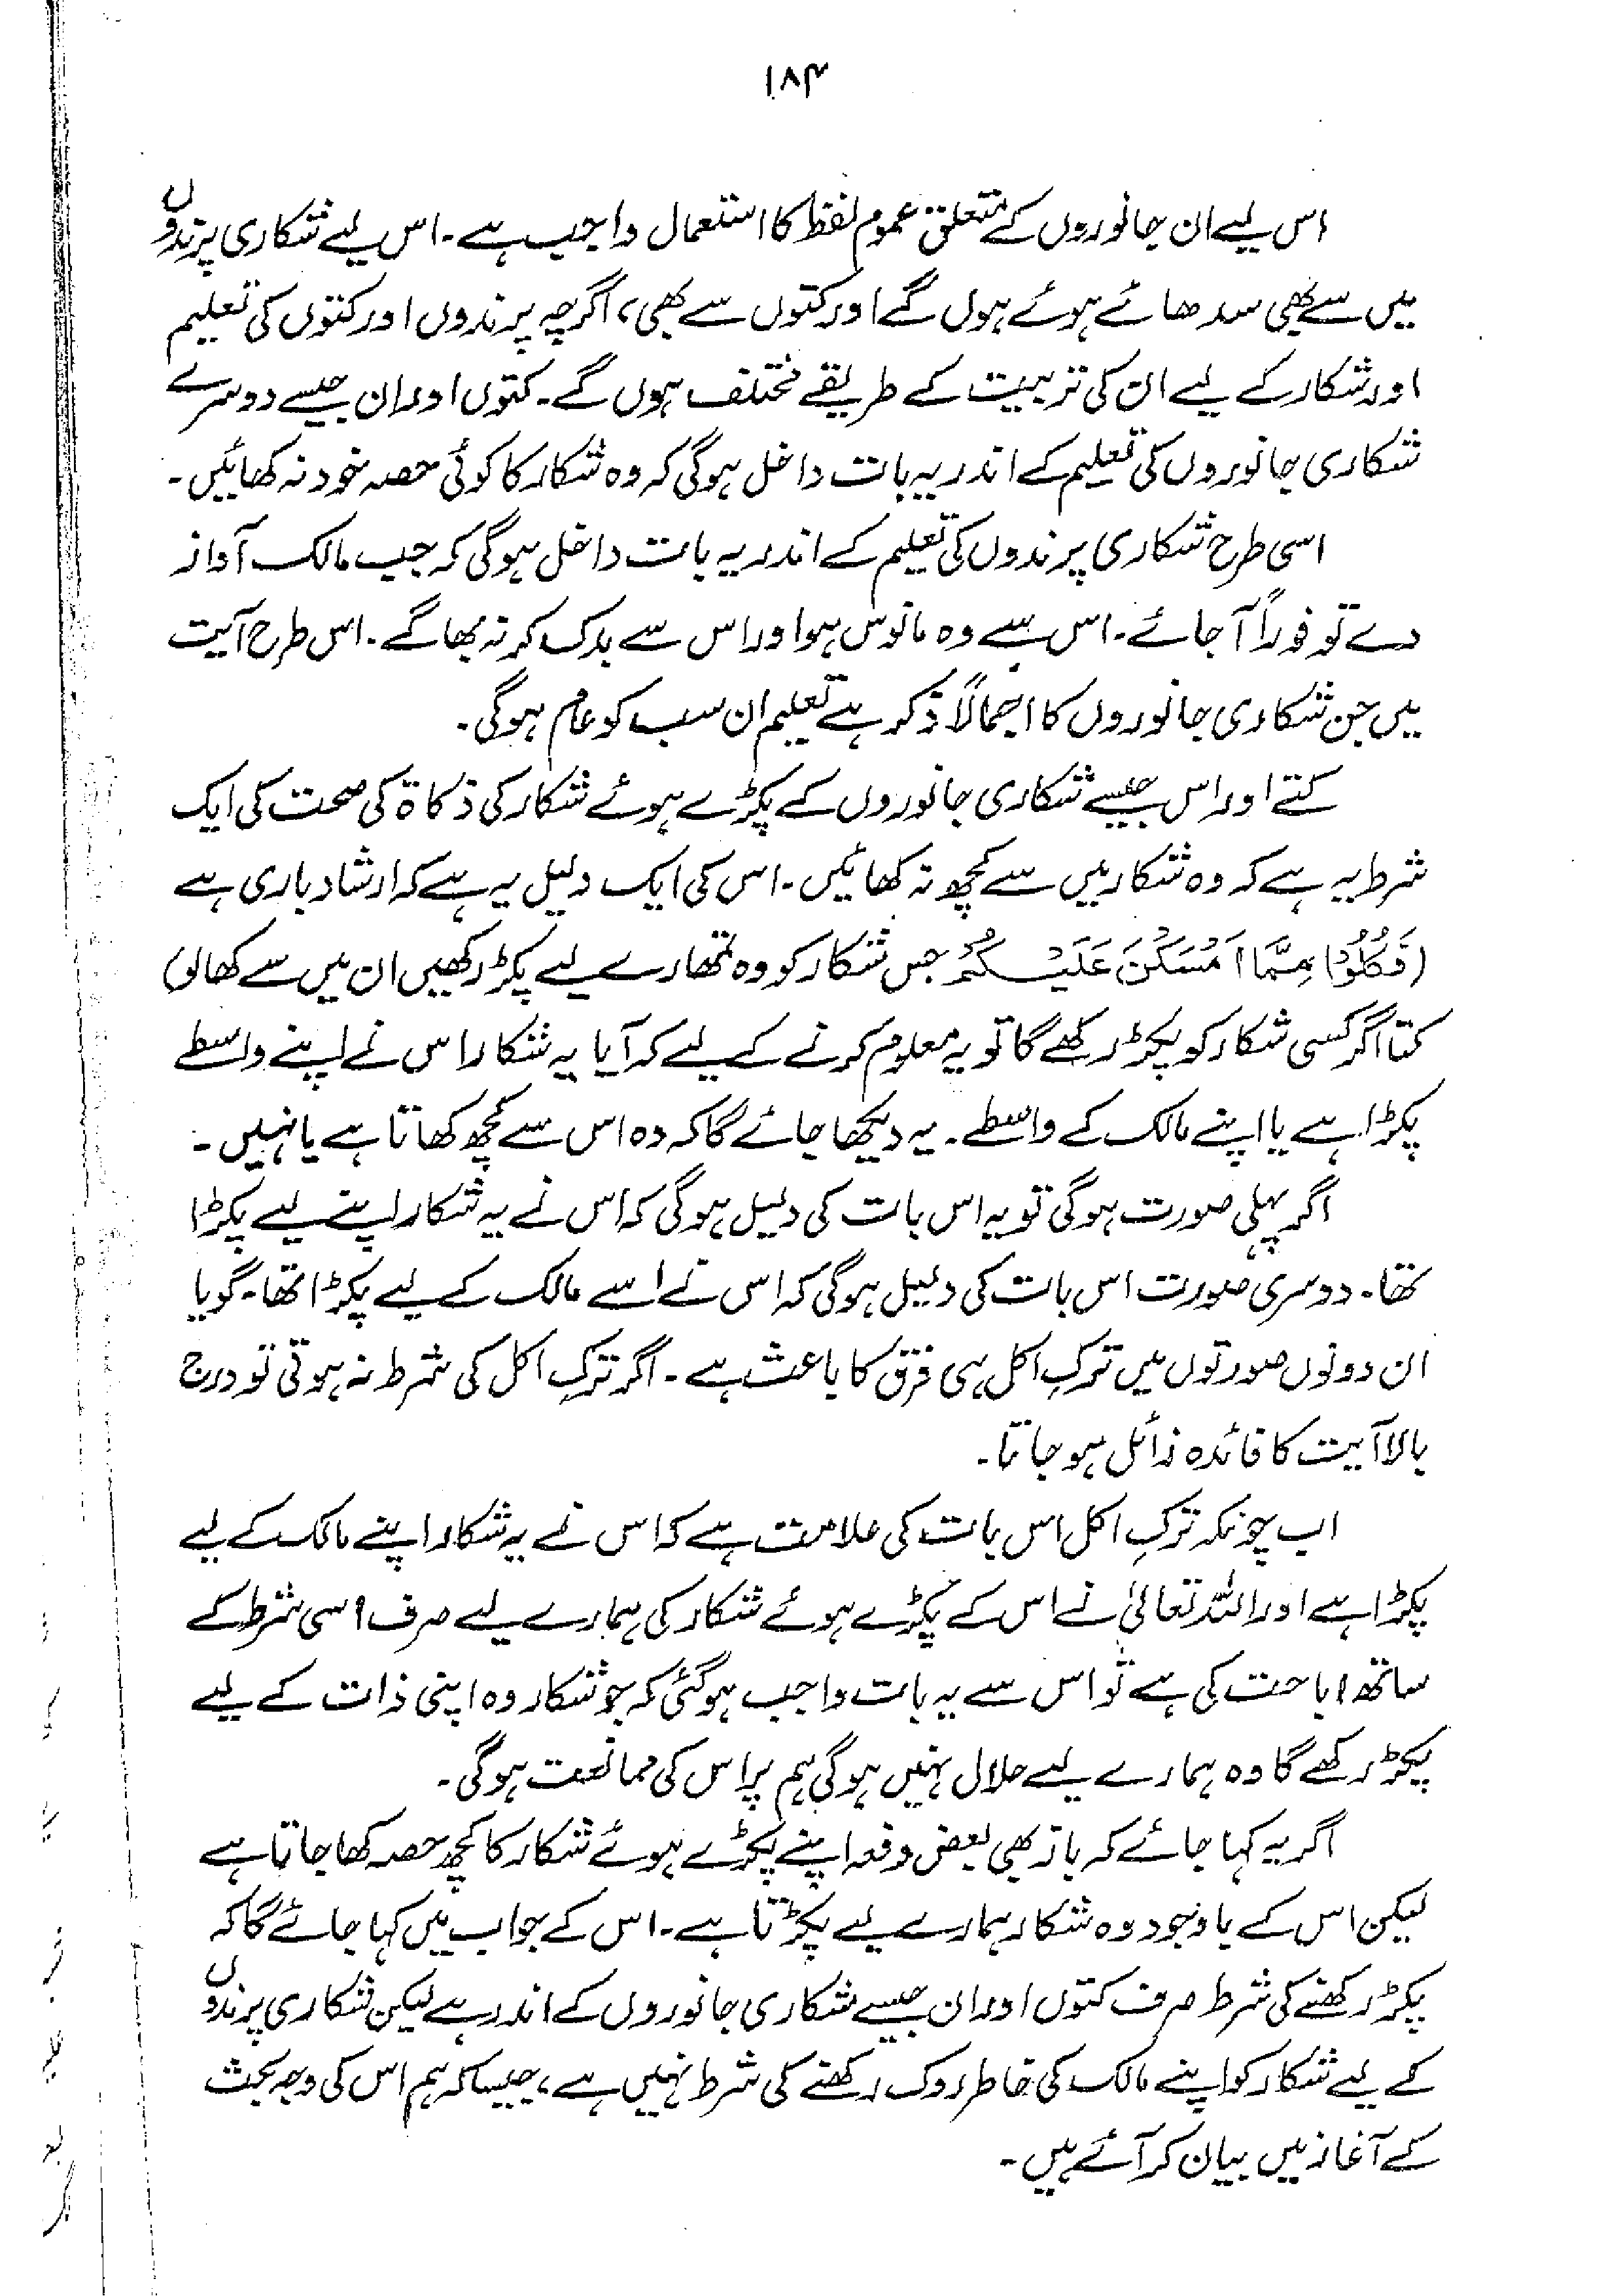 ۱۸۴
اس لیے ان جانوروں کے متعلق عموم لفظ کا استعمال واجب ہے۔ اس لیے شکاری پرندوں
میں سے بھی سدھائے ہوئے ہوں گے اور کتوں سے بھی، اگرچہ پرندوں اور کتوں کی تعلیم
اور شکار کے لیے ان کی تربیت کے طریقے مختلف ہوں گے۔ کتوں اور ان جیسے دوسرے
شکاری جانوروں کی تعلیم کے اندر یہ بات داخل ہوگی کہ وہ شکار کا کوئی حصہ خود نہ کھائیں۔
اسی طرح شکاری پرندوں کی تعلیم کے اندر یہ بات داخل ہوگی کہ جب مالک آواز
دے تو فوراً آ جائے۔ اس سے وہ مانوس ہو اور اس سے بدک کر نہ بھاگے۔ اس طرح آیت
میں جن شکاری جانوروں کا اجمالاً ذکر ہے تعلیم ان سب کو عام ہوگی۔
کتے اور اس جیسے شکاری جانوروں کے پکڑے ہوئے شکار کی ذکاۃ کی صحت کی ایک
شرط یہ ہے کہ وہ شکار میں سے کچھ نہ کھائیں۔ اس کی ایک دلیل یہ ہے کہ ارشاد باری ہے
(فَكُلُوْا مِمَّا اَمْسَكْنَ عَلَيْكُمْ جس شکار کو وہ تمھارے لیے پکڑ رکھیں ان میں سے کھالو)
کتا اگر کسی شکار کو پکڑ رکھے گا تو یہ معلوم کرنے کے لیے کہ آیا یہ شکار اس نے اپنے واسطے
پکڑا ہے یا اپنے مالک کے واسطے۔ یہ دیکھا جائے گا کہ وہ اس سے کچھ کھاتا ہے یا نہیں۔
اگر پہلی صورت ہوگی تو یہ اس بات کی دلیل ہوگی کہ اس نے یہ شکار اپنے لیے پکڑا
تھا۔ دوسری صورت اس بات کی دلیل ہوگی کہ اس نے اسے مالک کے لیے پکڑا تھا۔ گویا
ان دونوں صورتوں میں ترکِ اکل ہی فرق کا باعث ہے۔ اگر ترکِ اکل کی شرط نہ ہوتی تو درج
بالا آیت کا فائدہ زائل ہو جاتا۔
اب چونکہ ترکِ اکل اس بات کی علامت ہے کہ اس نے یہ شکار اپنے مالک کے لیے
پکڑا ہے اور اللہ تعالیٰ نے اس کے پکڑے ہوئے شکار کی ہمارے لیے صرف اسی شرط کے
ساتھ اباحت کی ہے تو اس سے یہ بات واجب ہوگئی کہ جو شکار وہ اپنی ذات کے لیے
پکڑ رکھے گا وہ ہمارے لیے حلال نہیں ہوگی ہم پر اس کی ممانعت ہوگی۔
اگر یہ کہا جائے کہ باز بھی بعض دفعہ اپنے پکڑے ہوئے شکار کا کچھ حصہ کھا جاتا ہے
لیکن اس کے باوجود وہ شکار ہمارے لیے پکڑتا ہے۔ اس کے جواب میں کہا جائے گا کہ
پکڑ رکھنے کی شرط صرف کتوں اور ان جیسے شکاری جانوروں کے اندر ہے لیکن شکاری پرندوں
کے لیے شکار کو اپنے مالک کی خاطر روک رکھنے کی شرط نہیں ہے، جیسا کہ ہم اس کی وجہ بحث
کے آغاز میں بیان کر آئے ہیں۔